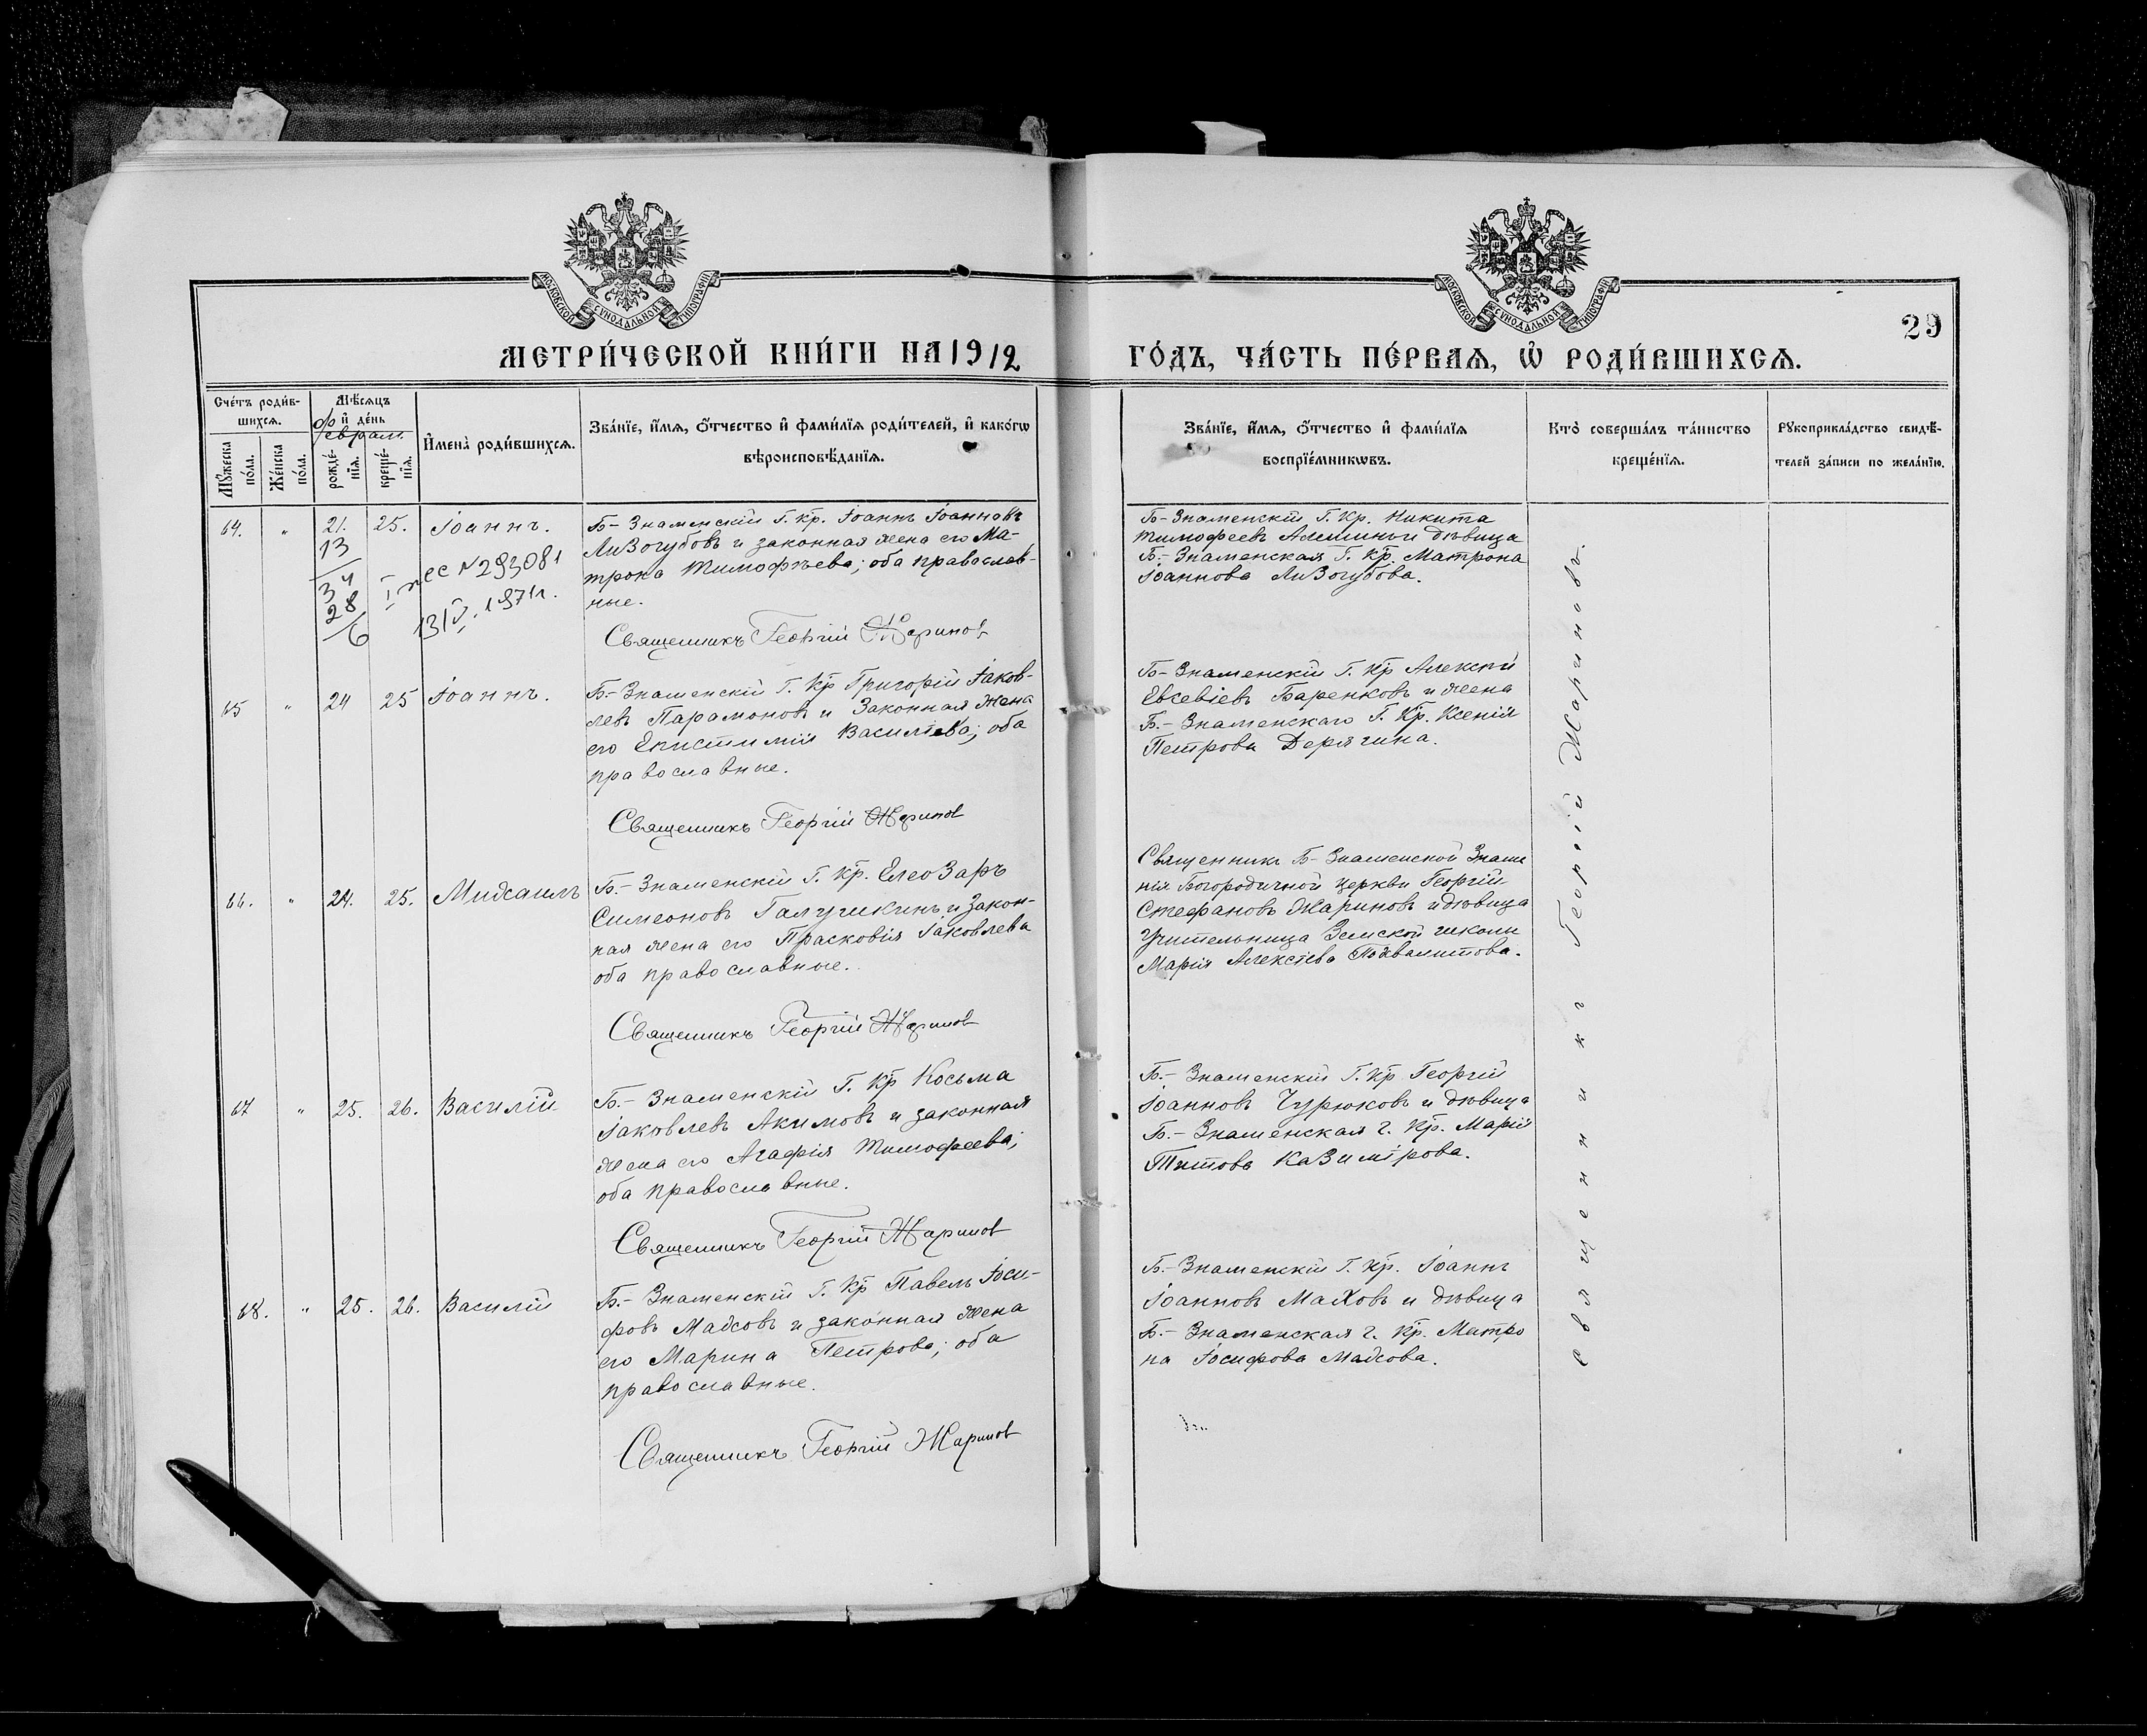 МОСКОВСКОЙ СУНОДАЛЬНОЙ ТИПОГРАФІИ
МОСКОВСКОЙ СУНОДАЛЬНОЙ ТИПОГРАФІИ
29
МЕТРИ́ЧЕСКОЙ КНИ́ГИ НА 1912
ГО́ДЪ, ЧА́СТЬ ПЕ́РВАѦ, Ѡ҆ РОДИ́ВШИХСѦ.
Сче́тъ роди́в-
шихсѧ.
Мѣ́сѧцъ
и҆ де́нь
Феврал.
Мꙋ́жеска по́ла.
Же́нска по́ла.
рожде́-нїѧ.
креще́-нїѧ.
И҆мена̀ роди́вшихсѧ.
Зва́нїе, и҆́мѧ, ѻ҆́тчество и҆ фами́лїѧ роди́телей, и҆ како́гѡ
вѣроисповѣ́данїѧ.
Зва́нїе, и҆́мѧ, ѻ҆́тчество и҆ фами́лїѧ
воспрїе́мникѡвъ.
Кто̀ соверша́лъ та́инство
креще́нїѧ.
Рꙋкоприкла́дство свидѣ́-
телей за́писи по жела́нїю.
64. " 21. 25. Іоаннъ.
13
34
28
6
№ 293081
13/V. 1971г.
Б-Знаменскій Г. Кр. Іоаннъ Іоанновъ
Лизогубовъ и законная жена его Ма-
трона Тимофѣева; оба православ-
ные.
Священникъ Георгій Жариновъ
Б-Знаменскій Г. Кр. Никита
Тимофеевъ Алешинъ и дѣвица
Б.-Знаменская Г. Кр. Матрона
Іоаннова Лизогубова.
65 " 24 25 Іоаннъ.
Б.-Знаменскій Г. Кр Григорій Іаков-
левъ Парамоновъ и Законная жена
его Епистимія Васильева; оба
православные.
Священникъ Георгій Жаринов
Б-Знаменскій Г. Кр Алексій
Евсевіевъ Баренковъ и жена
Б.-Знаменскаго Г. Кр. Ксенія
Петрова Дерягина.
66. " 24. 25. Михаилъ
Б.-Знаменскій Г. Кр. Елеозаръ
Симеоновъ Галушкинъ и Закон-
ная жена его Прасковія Іаковлева
оба православные.
Священникъ Георгій Жаринов
Священникъ Б-Знаменской Знаме
нія Богородичной церкви Георгій
Стефановъ Жариновъ и дѣвица
Учительница Земской школы
Марія Алексѣева
67 " 25. 26. Василій
Б.-Знаменскій Г. Кр Косьма
Іаковлевъ Акимовъ и законная
жена его Агафія Тимофеева;
оба православные.
Священникъ Георгій Жаринов
Б.-Знаменскій Г. Кр Георгій
Іоанновъ Чурюковъ и дѣвица
Б.-Знаменская г. Кр. Марія
Титова Казимірова.
68. " 25. 26. Василій
Б.-Знаменскій Г. Кр Павелъ Іоси-
фовъ Махов и законная жена
его Марина Петрова; оба
православные.
Священникъ Георгій Жаринов
Б.-Знаменскій Г. Кр. Іоаннъ
Іоанновъ Маховъ и дѣвица
Б.-Знаменская г. Кр. Матро
на Іосифова Махова.
Священникъ Георгій Жариновъ.